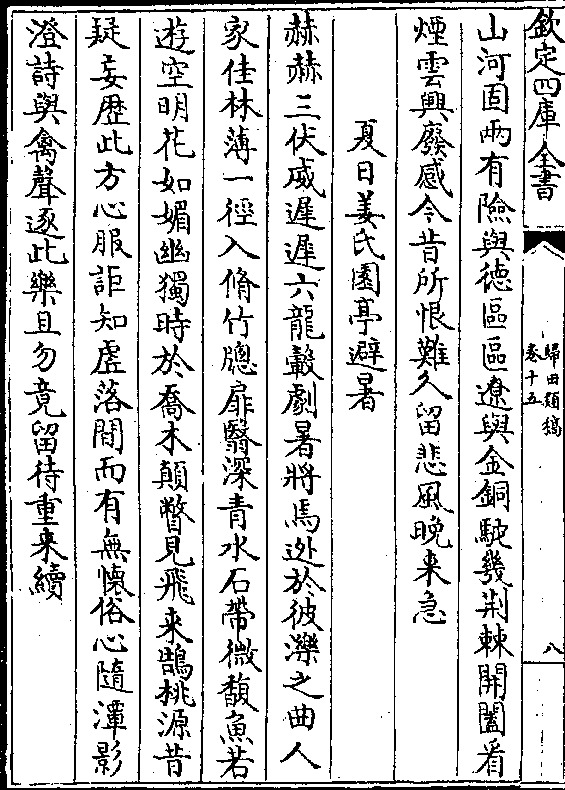 欽定四庫全書
歸田類稿
卷十五
八
山河固兩有險與徳區區遼與金銅駝幾荆棘開闔看
煙雲興廢感今昔所恨難久留悲風晚来急
夏日姜氏園亭避暑
赫赫三伏威遲遲六龍轂劇暑將馬逃於彼濼之曲人
家佳林薄一徑入脩竹牕扉翳深青水石帶微馥魚若
遊空明花如媚幽獨時於喬木顛瞥見飛来鵠桃源昔
疑妄歴此方心服詎知虚落間而有無懐俗心隨潭影
澄詩與禽聲逐此樂且勿竟留待重来續